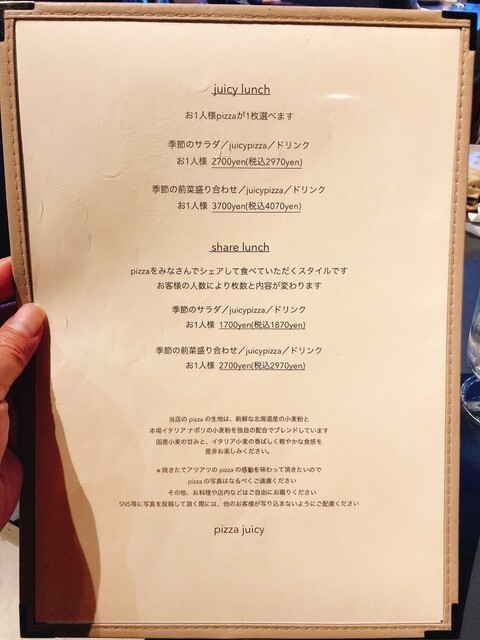 juicy lunch
お1人様pizzaが1枚選べます
季節のサラダ／juicypizza／ドリンク
お1人様 2700yen(税込2970yen)
季節の前菜盛り合わせ／juicypizza／ドリンク
お1人様 3700yen(税込4070yen)
share lunch
pizzaをみなさんでシェアして食べていただくスタイルです
お客様の人数により枚数と内容が変わります
季節のサラダ／juicypizza／ドリンク
お1人様 1700yen(税込1870yen)
季節の前菜盛り合わせ／juicypizza／ドリンク
お1人様 2700yen(税込2970yen)
当店の pizza の生地は、新鮮な北海道産の小麦粉と
本場イタリア ナポリの小麦粉を独自の配合でブレンドしています
国産小麦の甘みと、イタリア小麦の香ばしく軽やかな食感を
是非お楽しみください。
＊焼きたてアツアツの pizza の感動を味わって頂きたいので
pizza の写真はなるべくご遠慮ください
その他、お料理や店内などはご自由にお撮りください
SNS等に写真を投稿して頂く際には、他のお客様が写り込まないようにご配慮ください
pizza juicy